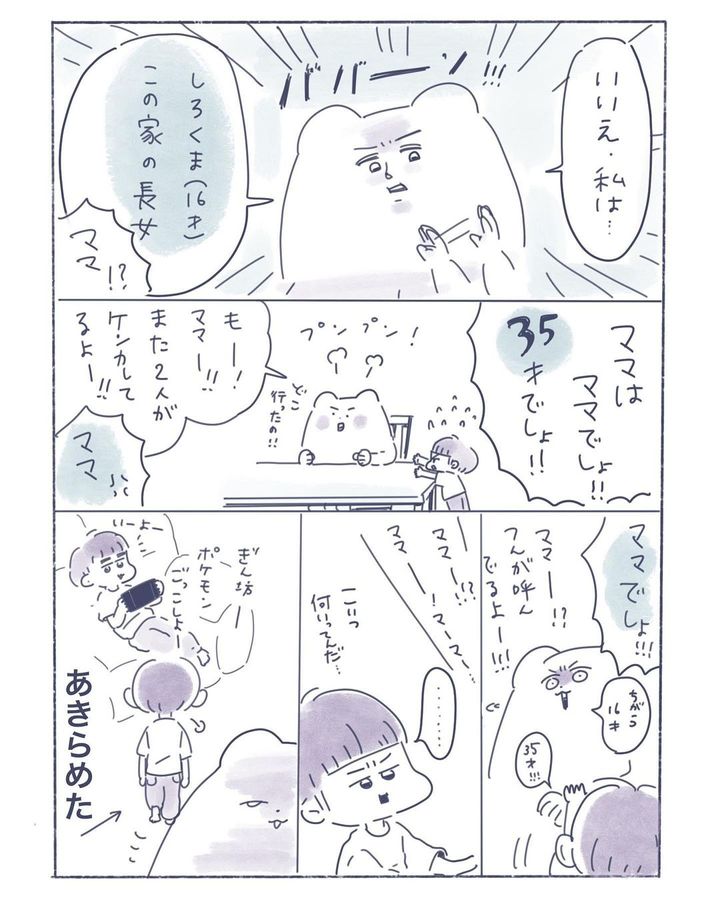 いいえ・私は…
ババーン!!!
しろくま(16才)
この家の長女
ママ!?
ママは
ママでしょ!!
35
才でしょー!!
プンプン!
どこ
行ったの!!
もー!
ママー!!
また2人が
ケンカして
るよー!!
ママ
ママでしょ!!!
ママー!?
てんが呼ん
でるよー!!!
ちがう
16才
35才!!!
ママー!?
ママー!マーマー…
こいつ
何いってんだ…
………
ぎん坊ー
ポケモン
ごっこしよー
いーよー
あきらめた